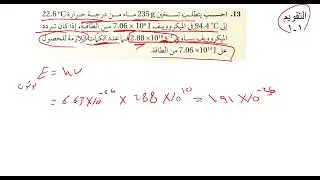 التقويم
١-١
13. احسب يتطلب تسخين 235 g ماء من درجة حرارة 22.6 °C
إلى 94.4 °C في الميكروويف 7.06 × 10⁴ J من الطاقة. إذا كان تردد
الميكروويف يساوي 2.88 × 10¹⁰ s⁻¹ فما عدد الكمات اللازمة للحصول
على 7.06 × 10⁴ J من الطاقة.
E = hν
فوتون
= 6.63 × 10⁻³⁴ × 2.88 × 10¹⁰ = 1.91 × 10⁻²³